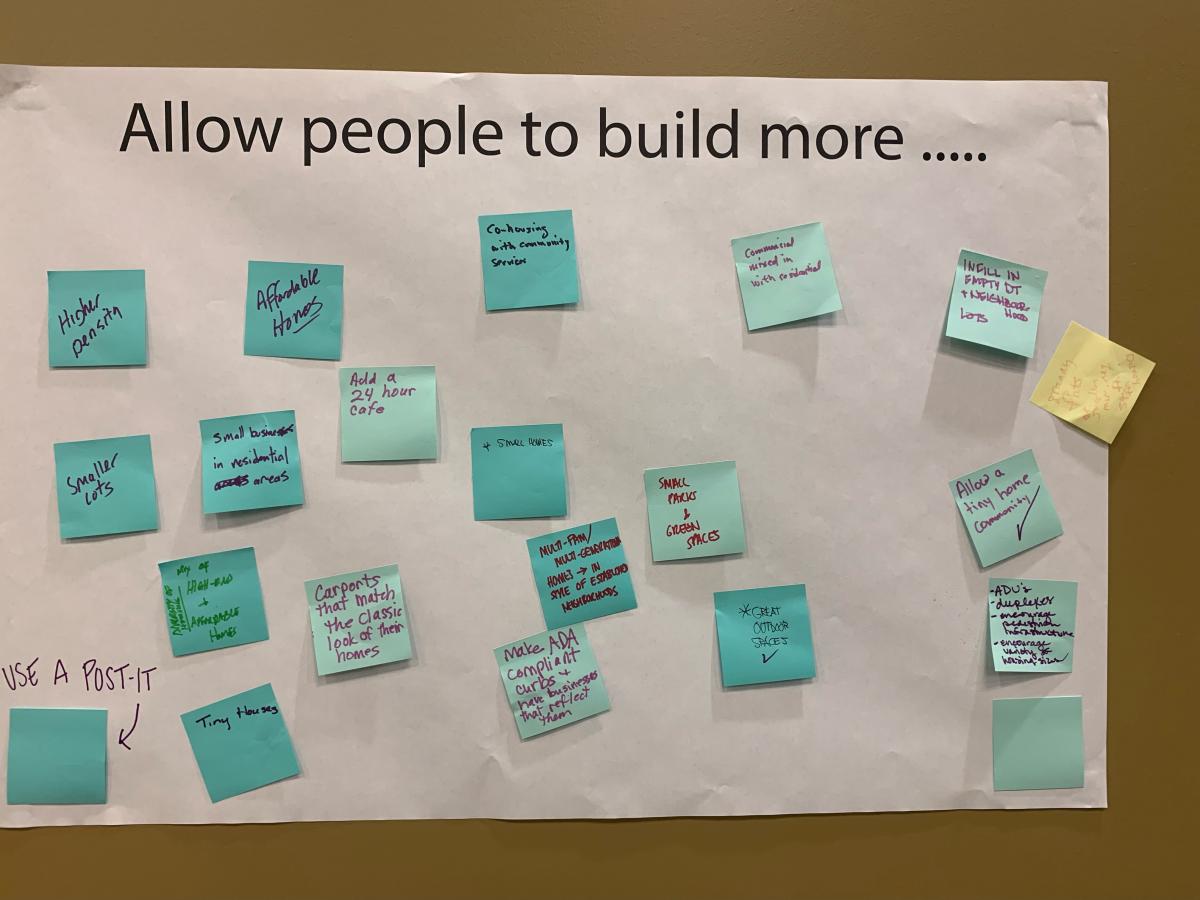 Allow people to build more .....
Co-housing
with community
services
Commercial
mixed in
with residential
INFILL IN
EMPTY DT
+ NEIGHBOOR-
HOOD
LOTS
Higher
Density
Affordable
Homes
Add a
24 hour
cafe
Smaller
Lots
Small business
in residential
areas
+ SMALL HOMES
SMALL
PARKS
&
GREEN
SPACES
Allow a
tiny home
community
MIX OF
HIGH-END
+
AFFORDABLE
HOMES
Carports
that match
the classic
look of their
homes
MULTI-FAM/
MULTI-GENERATION
HOMES → IN
STYLE OF ESTABLISHED
NEIGHBORHOODS
* GREAT
OUTDOOR
SPACES
- ADU's
- duplexes
- encourage
pedestrian
infrastructure
- encourage
variety of
housing sizes
Make ADA
compliant
curbs +
have businesses
that reflect
them
USE A POST-IT
Tiny Houses